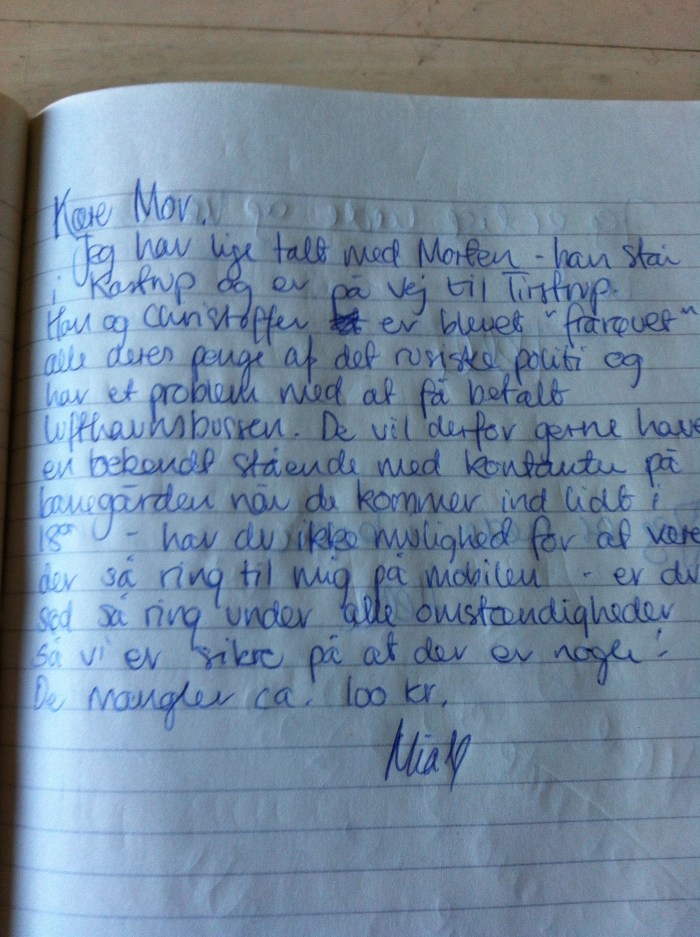 Kære Mor.
Jeg har lige talt med Morten - han står
i Kastrup og er på vej til Tirstrup.
Han og Christoffer er blevet "frarøvet"
alle deres penge af det russiske politi og
har et problem med at få betalt
lufthavnsbussen. De vil derfor gerne have
en bekendt stående med kontanter på
banegården når de kommer ind lidt i
18ºº - har du ikke mulighed for at være
der så ring til mig på mobilen - er du
sød så ring under alle omstændigheder
så vi er sikre på at der er nogen!
De mangler ca. 100 kr.
Mia